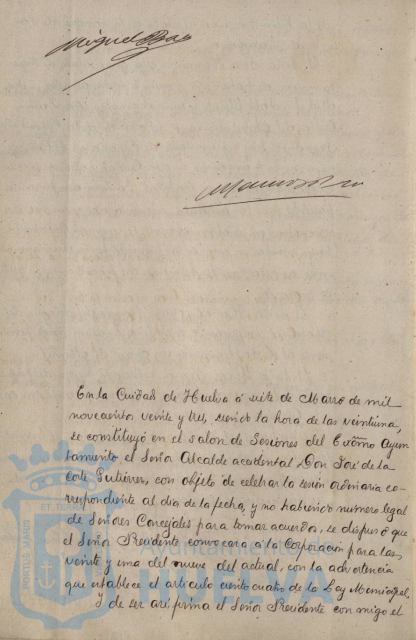 Miguel Ba
En la Ciudad de Huelva á siete de Marzo de mil
novecientos veinte y tres, siendo la hora de las veintiuna,
se constituyó en el salon de Sesiones del Excmo Ayun-
tamiento el Señor Alcalde accidental Don José de la
Corte Gutierrez, con objeto de celebrar la sesion ordinaria co-
rrespondiente al dia de la fecha, y no habiendo numero legal
de Señores Concejales para tomar acuerdo, se dispuso que
el Señor Presidente convocara á la Corporacion para las
veinte y una del nueve del actual, con la advertencia
que establece el articulo ciento cuatro de la Ley Municipal.
Y de ser asi firma el Señor Presidente con migo el
PORTUS MARIS
ET TERRÆ
Ayuntamiento de
HUELVA